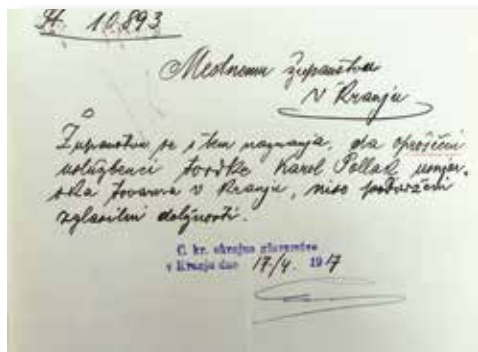 St. 10.893
Mestnemu županstvu
v Kranju
Županstvu se s tem naznanja, da oproščeni
uslužbenci tvrdke Karol Pollak, usnjar-
ska tovarna v Kranju, niso podvrženi
zglasilni dolžnosti.
C. kr. okrajno glavarstvo
v Kranju dne 17/4. 1917